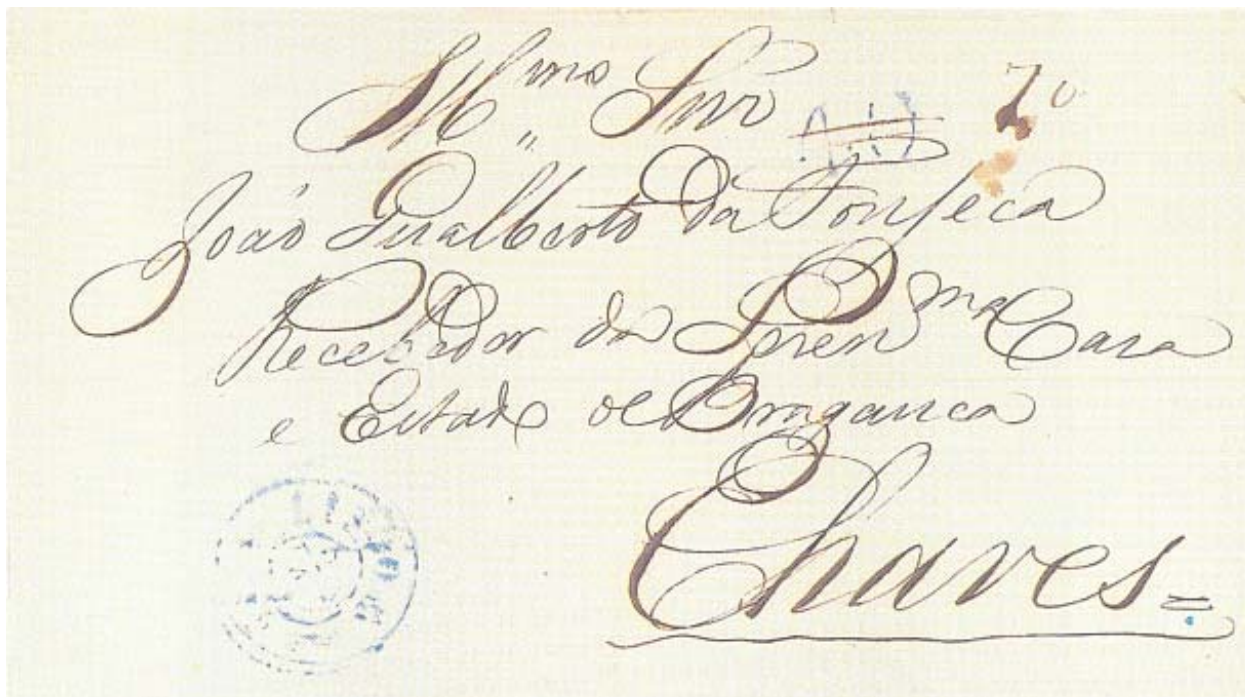 Illmo Snr
João Gualberto da Fonseca
Recebedor da Serenma Casa
e Estado de Bragança
Chaves =